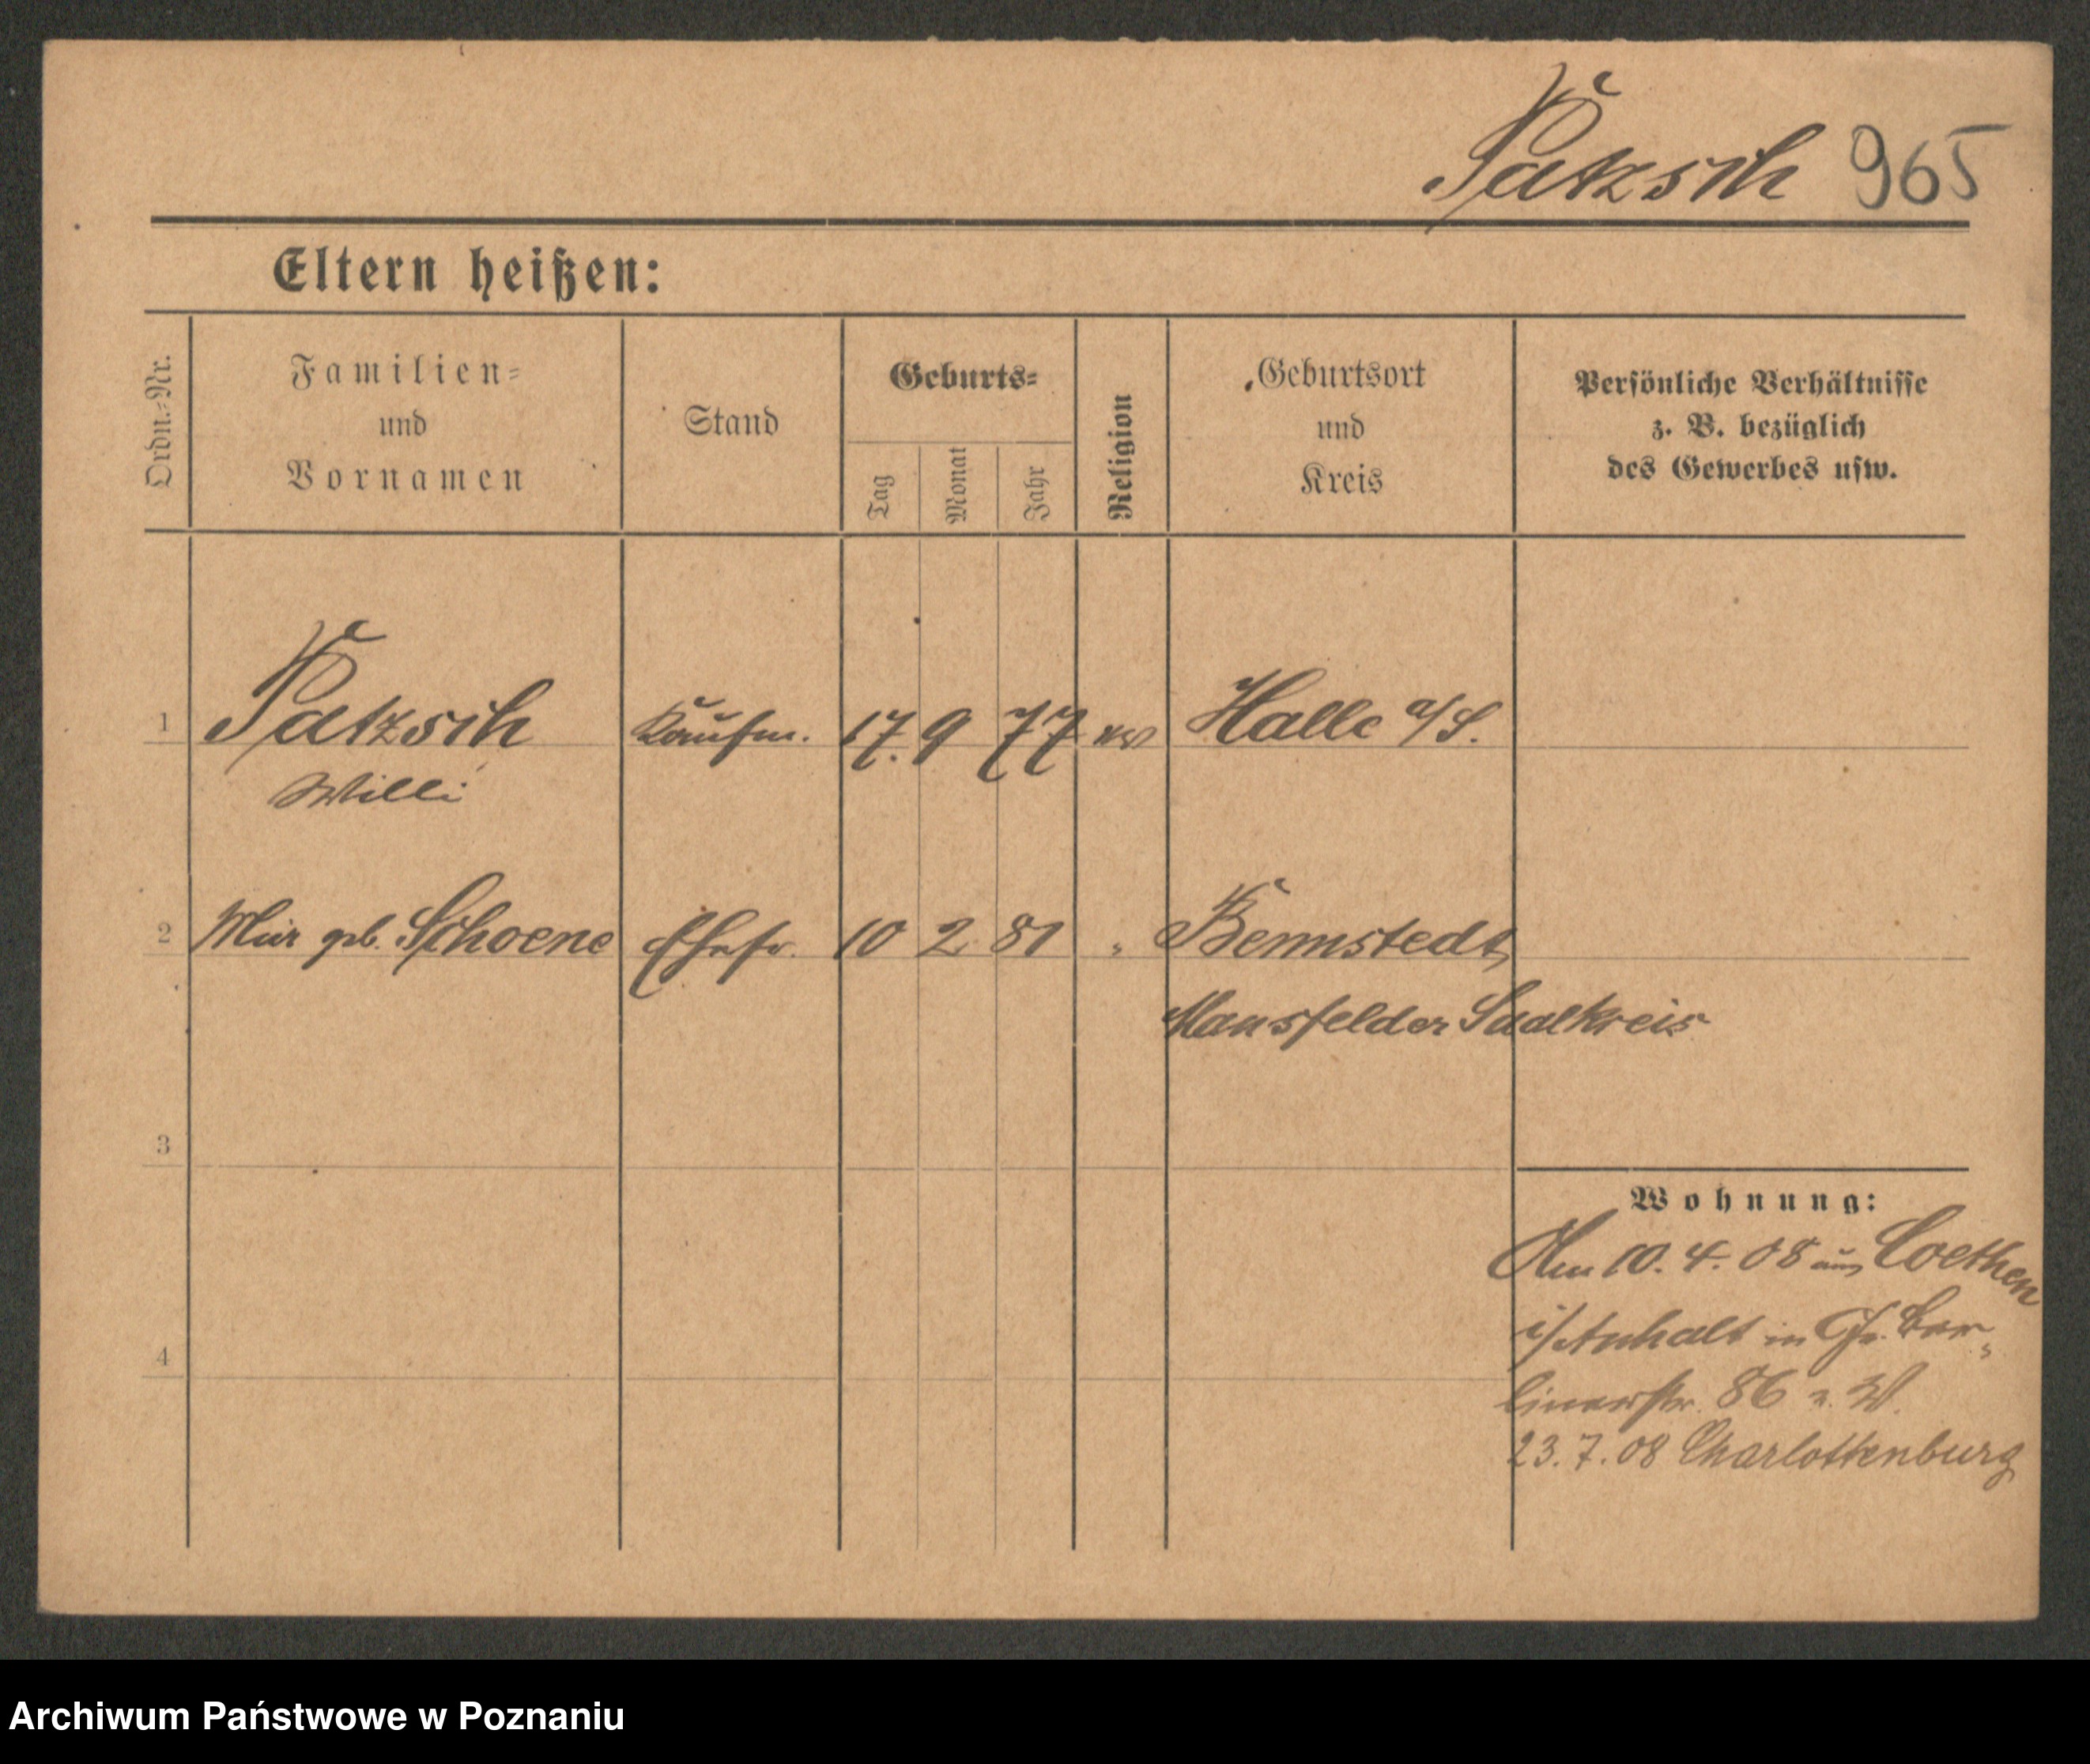 Patzsch 965
Eltern heißen:
Ordn.-Nr.
Familien-
und
Vornamen
Stand
Geburts-
Tag
Monat
Jahr
Religion
Geburtsort
und
Kreis
Persönliche Verhältnisse
z. B. bezüglich
des Gewerbes usw.
1 Patzsch Kaufm. 17. 9 77 ev Halle a/S.
Willi
2 geb. Schoene Ehefr. 10 2 81 " Bennstedt,
Mansfelder Saalkreis
3
Wohnung:
Am 10. 4. 08 aus Coethen
i/Anhalt in Gr. Ber-
4
linerstr. 86 z. W.
23. 7. 08 Charlottenburg
Archiwum Państwowe w Poznaniu